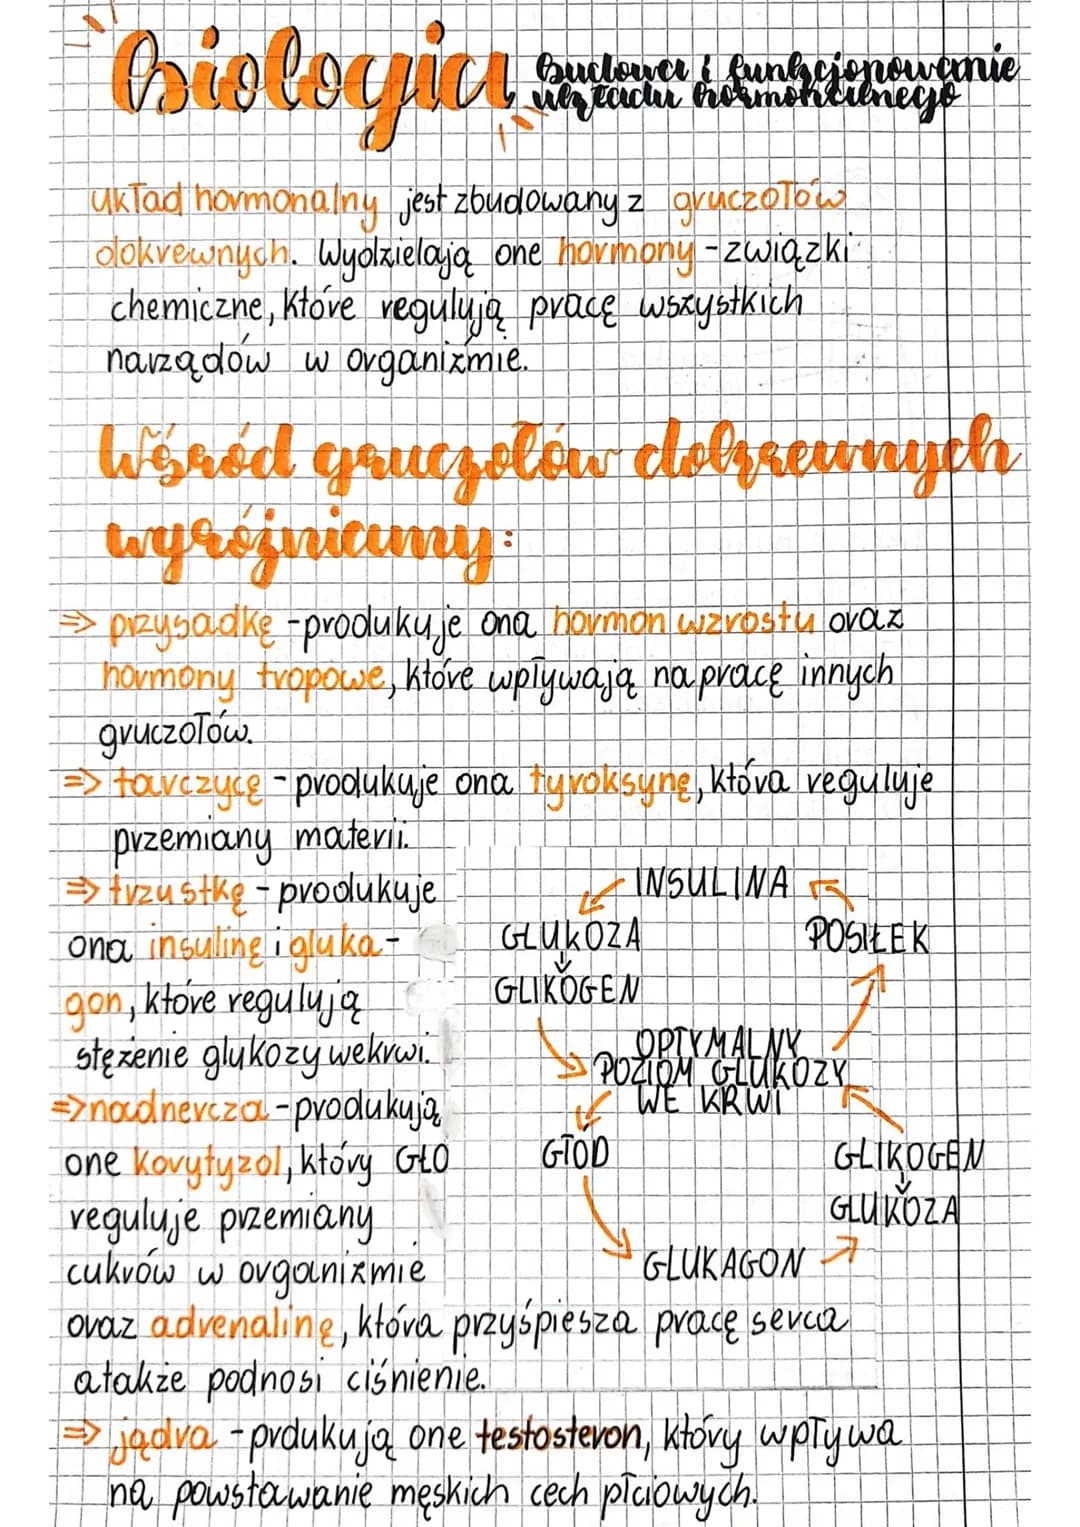 Biologia
Budowa i funkcjonowanie
układu hormonalnego
układ hormonalny jest zbudowany z gruczołów
dokrewnych. Wydzielają one hormony - związki
chemiczne, które regulują pracę wszystkich
narządów w organizmie.
Wśród gruczołów dokrewnych
wyróżniamy:
=> przysadkę - produkuje ona hormon wzrostu oraz
hormony tropowe, które wpływają na pracę innych
gruczołów.
=> tarczycę - produkuje ona tyroksynę, która reguluje
przemiany materii.
=> trzustkę - produkuje
ona insulinę i gluka-
gon, które regulują
stężenie glukozy we krwi.
=> nadnercza - produkują
one kortyzol, który
reguluje przemiany
cukrów w organizmie
oraz adrenalinę, która przyśpiesza pracę serca
a także podnosi ciśnienie.
=> jądra - prdukują one testosteron, który wpływa
na powstawanie męskich cech płciowych.
INSULINA
GLUKOZA
POSIŁEK
GLIKOGEN
OPTYMALNY
POZIOM GLUKOZY
WE KRWI
GŁÓD
GLIKOGEN
GLUKOZA
GLUKAGON